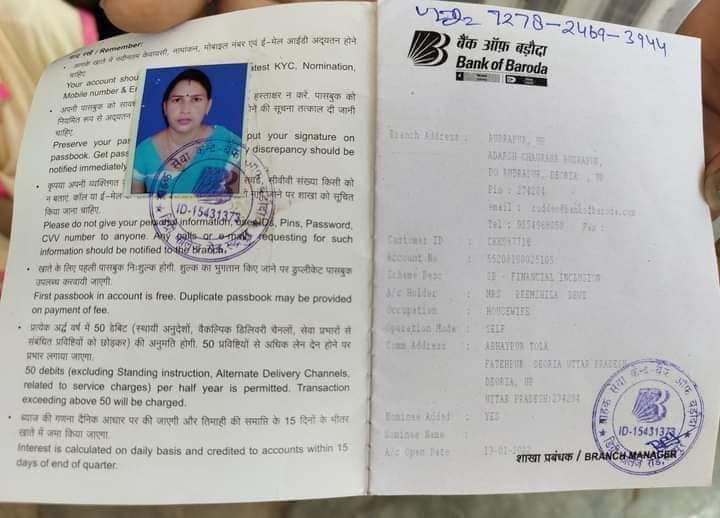 याद रखें / Remember:
नवीनतम केवायसी, नामांकन, मोबाइल नंबर एवं ई-मेल आईडी अद्यतन होने
चाहिए.
Your account shou
atest KYC, Nomination,
Mobile number & E
हस्ताक्षर न करें. पासबुक को
नियमित रूप से अद्यतन
की सूचना तत्काल दी जानी
चाहिए.
Preserve your pas
put your signature on
passbook. Get pass
discrepancy should be
notified immediately
• कृपया अपनी व्यक्तिगत
सीवीवी संख्या किसी को
न बताएं. कॉल या ई-मेल
जाने पर शाखा को सूचित
किया जाना चाहिए.
Please do not give your personal information, user IDs, Pins, Password,
CVV number to anyone. Any calls or e-mails requesting for such
information should be notified to the branch.
• खाते के लिए पहली पासबुक निःशुल्क होगी. शुल्क का भुगतान किए जाने पर डुप्लीकेट पासबुक
उपलब्ध करवायी जाएगी.
First passbook in account is free. Duplicate passbook may be provided
on payment of fee.
• प्रत्येक अर्द्ध वर्ष में 50 डेबिट (स्थायी अनुदेशों, वैकल्पिक डिलिवरी चैनलों, सेवा प्रभारों से
संबंधित प्रविष्टियों को छोड़कर) की अनुमति होगी. 50 प्रविष्टियों से अधिक लेन देन होने पर
प्रभार लगाया जाएगा.
50 debits (excluding Standing instruction, Alternate Delivery Channels,
related to service charges) per half year is permitted. Transaction
exceeding above 50 will be charged.
• ब्याज की गणना दैनिक आधार पर की जाएगी और तिमाही की समाप्ति के 15 दिनों के भीतर
खाते में जमा किया जाएगा.
Interest is calculated on daily basis and credited to accounts within 15
days of end of quarter.
ID-15431373
7278-2469-3944
बैंक ऑफ़ बड़ौदा
Bank of Baroda
Branch Address : RUDRAPUR, UP
ADARSH CHAURAHA RUDRAPUR,
PO RUDRAPUR, DEORIA , UP
Pin : 274204
email :
Tel : Fax :
Customer ID :
Account No :
Scheme Desc : SB - FINANCIAL INCLUSION
A/c Holder : MRS PREMSHILA DEVI
Occupation : HOUSEWIFE
Operation Mode : SELF
Comm Address : ABHAYPUR TOLA
FATEHPUR DEORIA UTTAR PRADESH
DEORIA, UP
UTTAR PRADESH:274204
Nominee Added : YES
Nominee Name :
A/c Open Date
ID-15431373
शाखा प्रबंधक / BRANCH MANAGER